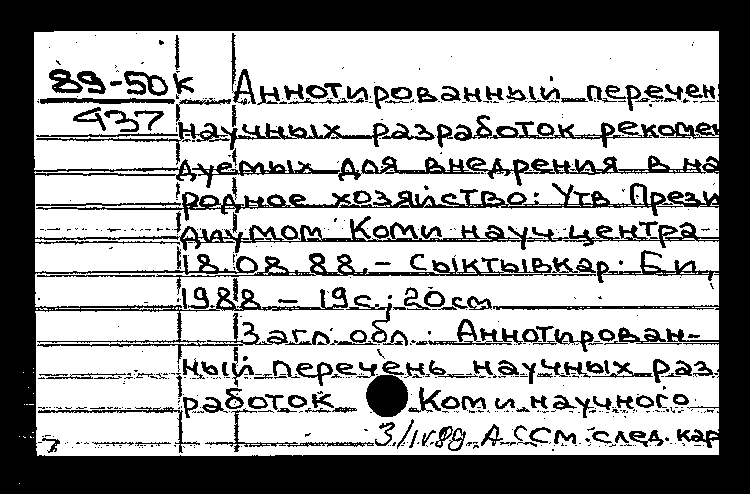 89-50к Аннотированный перечен
437 научных разработок рекомен
дуемых для внедрения в на
родное хозяйство: Утв Прези
диумом Коми науч.центра
18.08.88.- Сыктывкар: Б.и,
1988 - 19с.; 20см
Загл.обл.: Аннотирован-
ный перечень научных раз
работок Коми научного
3/IV89 А ССм.след.кар